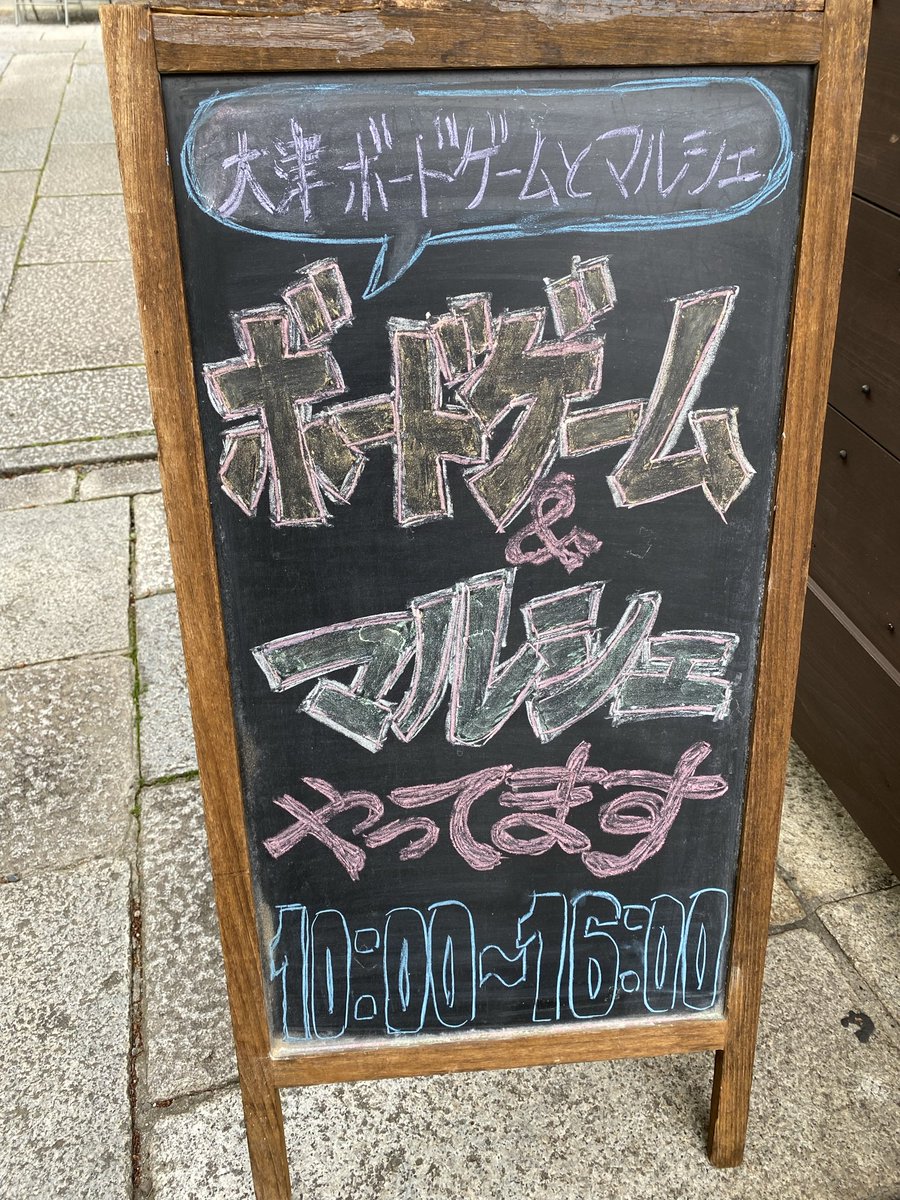 大津ボードゲームとマルシェ
ボードゲーム
&
マルシェ
やってます
10:00~16:00